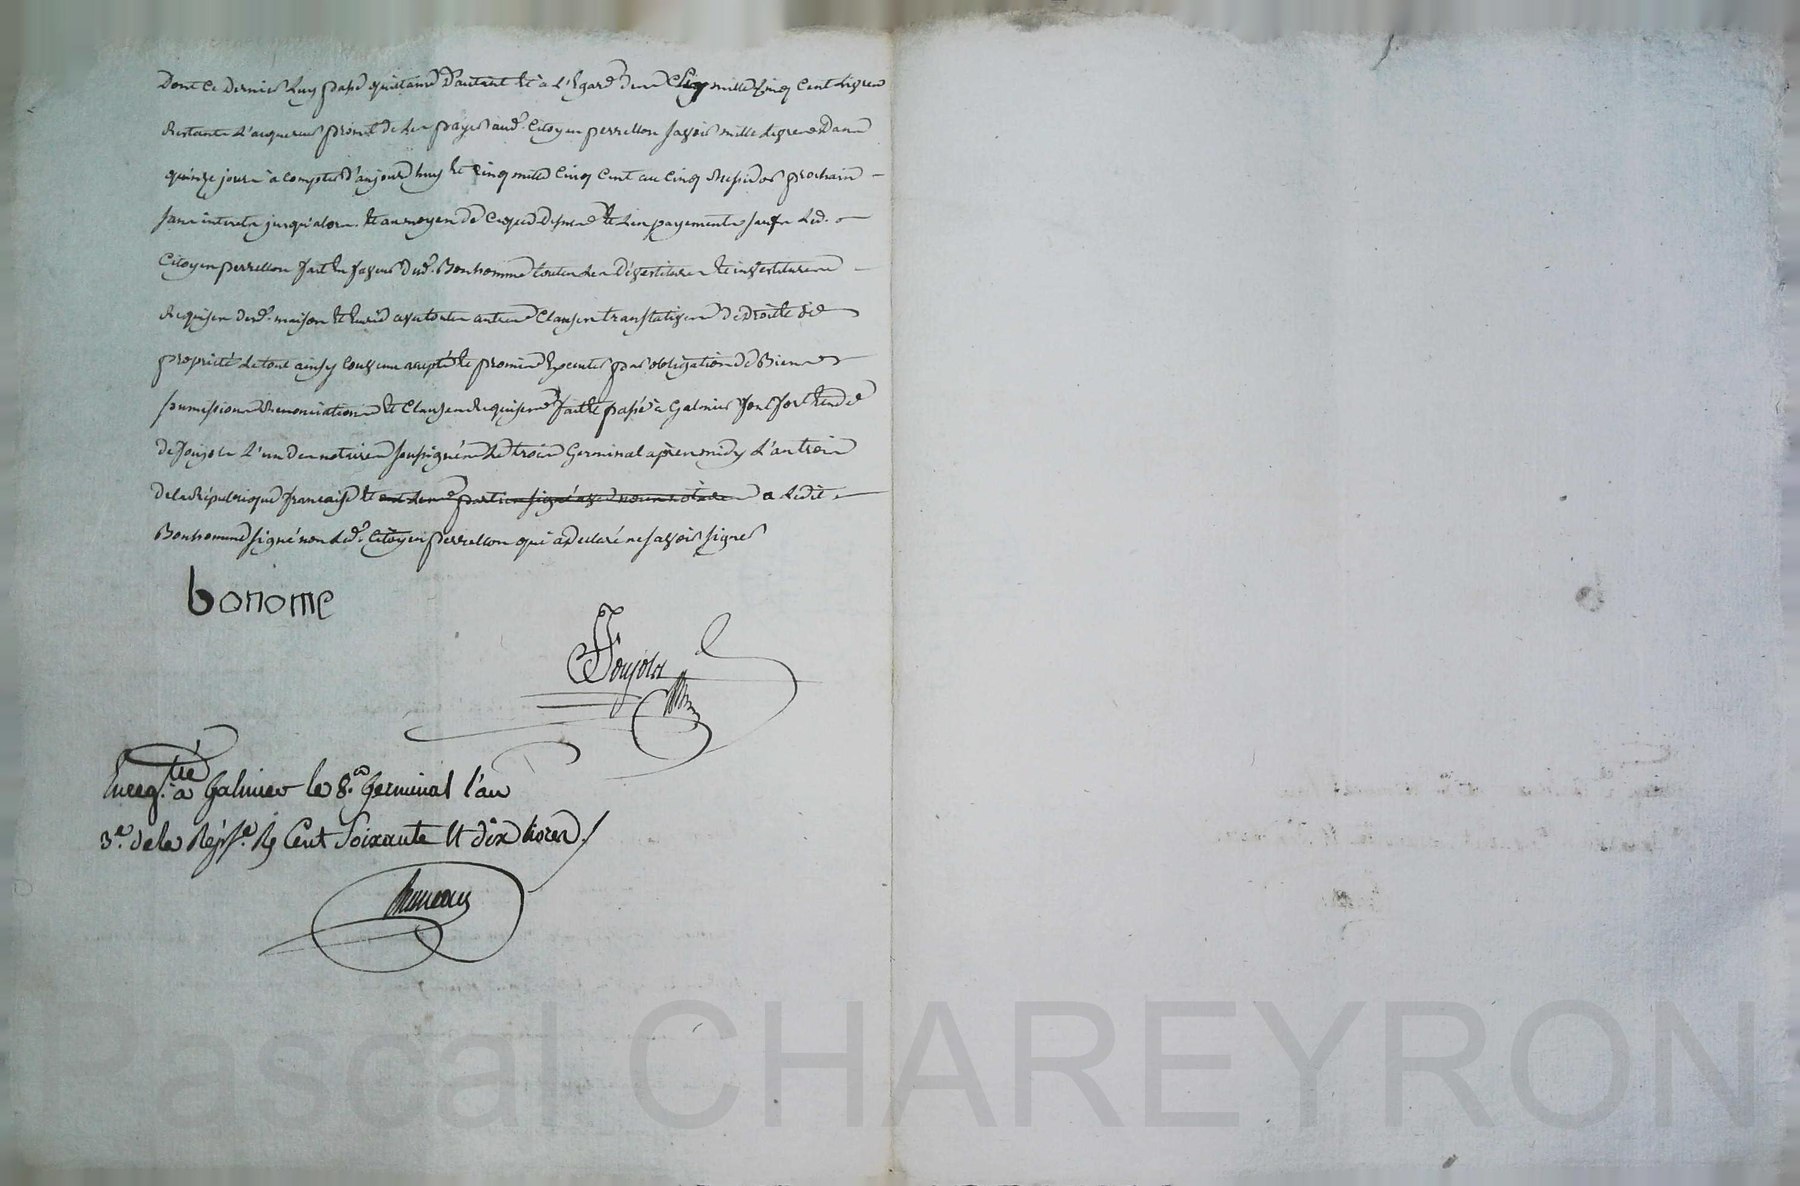 Dont ce dernier luy passe quittance d'autant et à l'Egard des Six mille Cinq Cent Livres
Restants L'acquereur promet de les payer aud. Citoyen perrellon savoir mille Livres Dans
quinze jours à compter d'aujourd huy et cinq mille Cinq Cent au Cinq prochain
sans interets jusqu'alors. Et au moyen de Ce que dessus et des payements faits Led.
Citoyen perrellon fait En faveur dud. Bonhomme toutes les dévestitures et investitures
Requises desd. maison et avec toutes autres Clauses translatives de droits et de
propriété le tout ainsy Convenu accepté et promis Executer par obligation de Biens
soumissions Renonciations et Clauses Requises fait et passé à Galmier fontfort Etude
de Joujols L'un des notaires soussignés Le trois Germinal après midy L'an trois
de la République française et ont les parties signé avec nous notaire a Ledit
Bonhomme signé non Led. Citoyen perrellon qui a Declaré ne savoir signer
bonome
Joujols
Enregtré à Galmier le 8. Germinal l'an
3e. de la Rép. Rç Cent Soixante Et dix livres